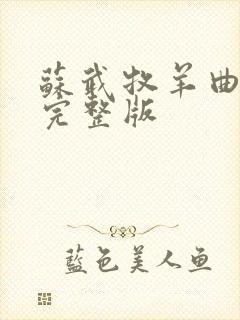 蘇武牧羊曲
完整版
藍色美人鱼